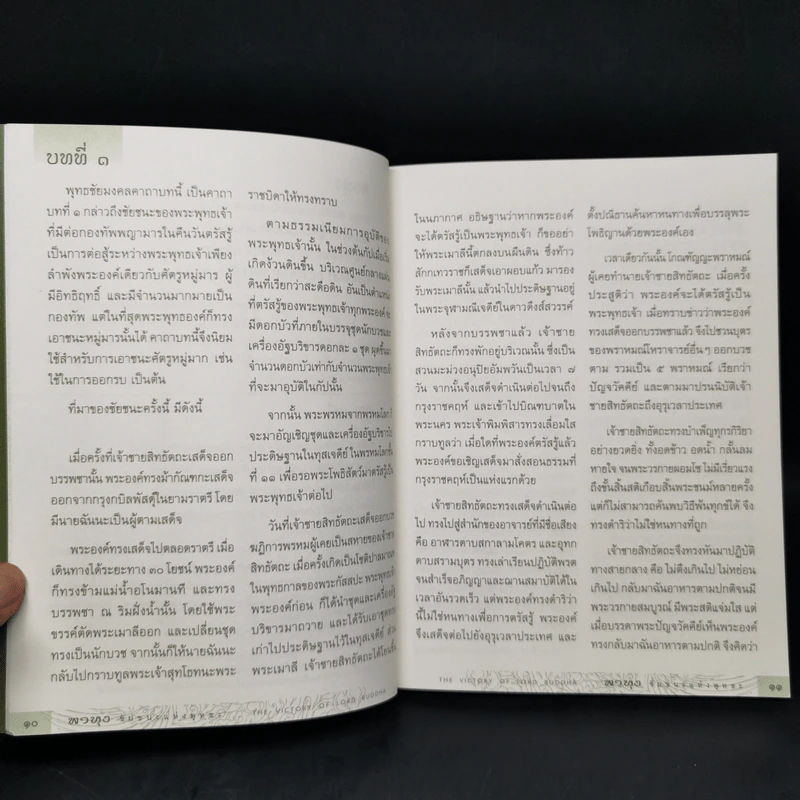 บทที่ ๑
พุทธชัยมงคลคาถาบทนี้ เป็นคาถา
บทที่ ๑ กล่าวถึงชัยชนะของพระพุทธเจ้า
ที่มีต่อกองทัพพญามารในคืนวันตรัสรู้
เป็นการต่อสู้ระหว่างพระพุทธเจ้าเพียง
ลำพังพระองค์เดียวกับศัตรูหมู่มาร ผู้
มีอิทธิฤทธิ์ และมีจำนวนมากมายเป็น
กองทัพ แต่ในที่สุดพระพุทธองค์ก็ทรง
เอาชนะหมู่มารนั้นได้ คาถาบทนี้จึงนิยม
ใช้สำหรับการเอาชนะศัตรูหมู่มาก เช่น
ใช้ในการออกรบ เป็นต้น
ที่มาของชัยชนะครั้งนี้ มีดังนี้
เมื่อครั้งที่เจ้าชายสิทธัตถะเสด็จออก
บรรพชานั้น พระองค์ทรงม้ากัณฑกะเสด็จ
ออกจากกรุงกบิลพัสดุ์ในยามราตรี โดย
มีนายฉันนะเป็นผู้ตามเสด็จ
พระองค์ทรงเสด็จไปตลอดราตรี เมื่อ
เดินทางได้ระยะทาง ๓๐ โยชน์ พระองค์
ก็ทรงข้ามแม่น้ำอโนมานที และทรง
บรรพชา ณ ริมฝั่งน้ำนั้น โดยใช้พระ
ขรรค์ตัดพระเมาลีออก และเปลี่ยนชุด
ทรงเป็นนักบวช จากนั้นก็ให้นายฉันนะ
กลับไปกราบทูลพระเจ้าสุทโธทนะพระ
ราชบิดาให้ทรงทราบ
ตามธรรมเนียมการอุบัติของ
พระพุทธเจ้านั้น ในช่วงต้นกัปเมื่อเริ่ม
เกิดง้วนดินขึ้น บริเวณศูนย์กลางแผ่น
ดินที่เรียกว่าสะดือดิน อันเป็นตำแหน่ง
ที่ตรัสรู้ของพระพุทธเจ้าทุกพระองค์ จะ
มีดอกบัวที่ภายในบรรจุชุดนักบวชและ
เครื่องอัฐบริขารดอกละ ๑ ชุด ผุดขึ้นมา
จำนวนดอกบัวเท่ากับจำนวนพระพุทธเจ้า
ที่จะมาอุบัติในกัปนั้น
จากนั้น พระพรหมจากพรหมโลกก็
จะมาอัญเชิญชุดและเครื่องอัฐบริขารไป
ประดิษฐานในทุสเจดีย์ ในพรหมโลกชั้น
ที่ ๑๑ เพื่อรอพระโพธิสัตว์มาตรัสรู้เป็น
พระพุทธเจ้าต่อไป
วันที่เจ้าชายสิทธัตถะเสด็จออกบวช
ฆฏิการพรหมผู้เคยเป็นสหายของเจ้าชาย
สิทธัตถะ เมื่อครั้งเกิดเป็นโชติปาลมาณพ
ในพุทธกาลของพระกัสสปะ พระพุทธเจ้า
พระองค์ก่อน ก็ได้นำชุดและเครื่องอัฐ
บริขารมาถวาย และได้รับเอาชุดทรง
เก่าไปประดิษฐานไว้ในทุสเจดีย์ ส่วน
พระเมาลี เจ้าชายสิทธัตถะได้โยนขึ้น
๑๐ พาหุง ชัยชนะแห่งพุทธะ THE VICTORY OF LORD BUDDHA
ในนภากาศ อธิษฐานว่าหากพระองค์
จะได้ตรัสรู้เป็นพระพุทธเจ้า ก็ขออย่า
ให้พระเมาลีนี้ตกลงบนผืนดิน ซึ่งท้าว
สักกเทวราชก็เสด็จเอาผอบแก้ว มารอง
รับพระเมาลีนั้น แล้วนำไปประดิษฐานอยู่
ในพระจุฬามณีเจดีย์ในดาวดึงส์สวรรค์
หลังจากบรรพชาแล้ว เจ้าชาย
สิทธัตถะก็ทรงพักอยู่บริเวณนั้น ซึ่งเป็น
สวนมะม่วงอนุปิยอัมพวันเป็นเวลา ๗
วัน จากนั้นจึงเสด็จดำเนินต่อไปจนถึง
กรุงราชคฤห์ และเข้าไปบิณฑบาตใน
พระนคร พระเจ้าพิมพิสารทรงเลื่อมใส
กราบทูลว่า เมื่อใดที่พระองค์ตรัสรู้แล้ว
พระองค์ขอเชิญเสด็จมาสั่งสอนธรรมที่
กรุงราชคฤห์เป็นแห่งแรกด้วย
เจ้าชายสิทธัตถะทรงเสด็จดำเนินต่อ
ไป ทรงไปสู่สำนักของอาจารย์ที่มีชื่อเสียง
คือ อาฬารดาบสกาลามโคตร และอุทก
ดาบสรามบุตร ทรงเล่าเรียนปฏิบัติพรต
จนสำเร็จอภิญญาและฌานสมาบัติได้ใน
เวลาอันรวดเร็ว แต่พระองค์ทรงดำริว่า
นี้ไม่ใช่หนทางเพื่อการตรัสรู้ พระองค์
จึงเสด็จต่อไปยังอุรุเวลาประเทศ และ
ตั้งปณิธานค้นหาหนทางเพื่อบรรลุพระ
โพธิญานด้วยพระองค์เอง
เวลาเดียวกันนั้น โกณฑัญญะพราหมณ์
ผู้เคยทำนายเจ้าชายสิทธัตถะ เมื่อครั้ง
ประสูติว่า พระองค์จะได้ตรัสรู้เป็น
พระพุทธเจ้า เมื่อทราบข่าวว่าพระองค์
ทรงเสด็จออกบวชแล้ว จึงไปชวนบุตร
ของพราหมณ์โหราจารย์อื่นๆ ออกบวช
ตาม รวมเป็น ๕ พราหมณ์ เรียกว่า
ปัญจวัคคีย์ และตามมาปรนนิบัติเจ้า
ชายสิทธัตถะถึงอุรุเวลาประเทศ
เจ้าชายสิทธัตถะทรงบำเพ็ญทุกรกิริยา
อย่างยวดยิ่ง ทั้งอดข้าว อดน้ำ กลั้นลม
หายใจ จนพระวรกายผอมโซ ไม่มีเรี่ยวแรง
ถึงขั้นสิ้นสติเกือบสิ้นพระชนม์หลายครั้ง
แต่ก็ไม่สามารถค้นพบวิธีพ้นทุกข์ได้ จึง
ทรงดำริว่าไม่ใช่หนทางที่ถูก
เจ้าชายสิทธัตถะจึงทรงหันมาปฏิบัติ
ทางสายกลาง คือ ไม่ตึงเกินไป ไม่หย่อน
เกินไป กลับมาฉันอาหารตามปกติจนมี
พระวรกายสมบูรณ์ มีพระสติแจ่มใส แต่
เมื่อบรรดาพระปัญจวัคคีย์เห็นพระองค์
ทรงกลับมาฉันอาหารตามปกติ จึงคิดว่า
THE VICTORY OF LORD BUDDHA พาหุง ชัยชนะแห่งพุทธะ ๑๑